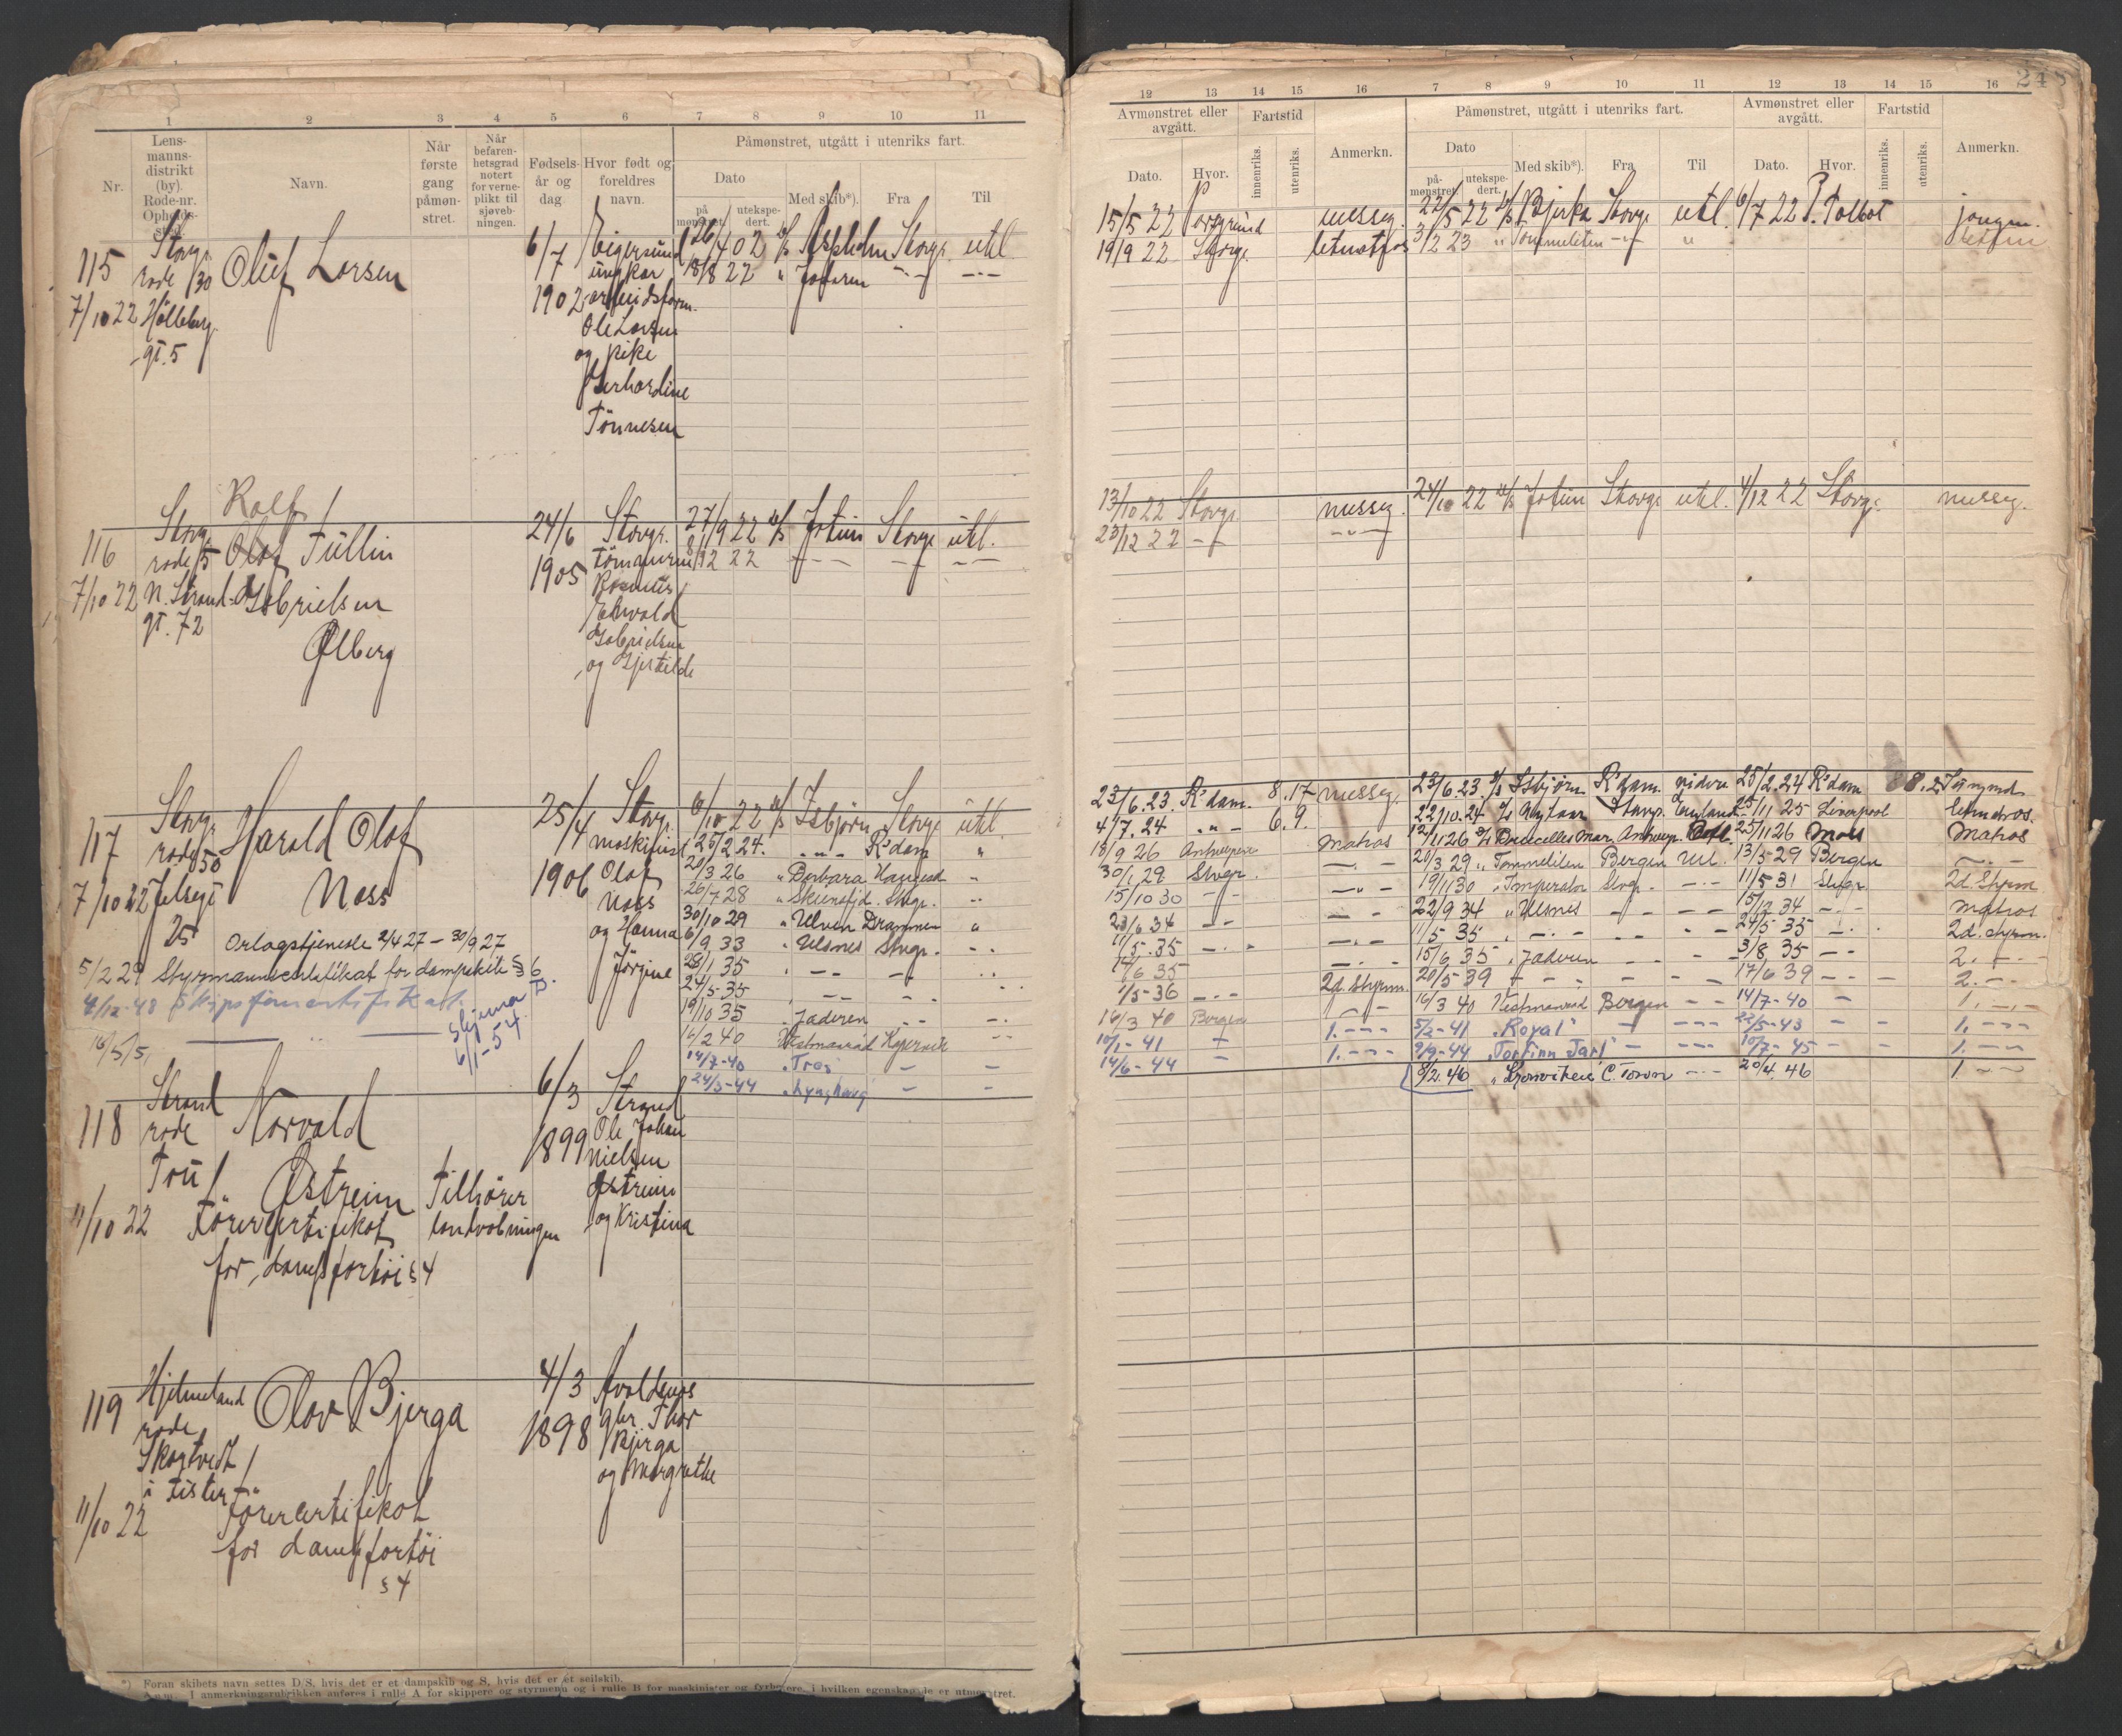 248
1 2 3 4 5 6 7 8 9 10 11
Nr.
Lens-
manns-
distrikt
(by).
Rode-nr.
Opholds-
sted.
Navn.
Når
første
gang
påmøn-
stret.
Når
befaren-
hetsgrad
notert
for verne-
plikt til
sjøveb-
ningen.
Fødsels-
år og
dag
Hvor født og
foreldres
navn.
Påmønstret, utgått i utenriks fart.
Dato
på
mønstret
utekspe-
dert.
Med skib*).
Fra
Til
115
Stavgr
rode /30
7/10 22 Hölleberg
gt. 5
Oluf Larsen
6/7
1902
Eigersund
ungkar
arbeidsform.
Ole Larsen
og pike
Gerhardine
Tönnesen
26/4 02 D/S Aspholm Stavgr. utl.
18/8 22 " Jæderen
116
Stavgr
rode /5
7/10 22 N. Strand-
gt. 72
Rolf
Olaf Tüllin
Gabrielsen
Ølberg
24/6
1905
Stavgr.
tömmerm
Rasmus
Edvvald
Gabrielsen
og Gjertilde
27/9 22 D/S Jotun Stavgr utl.
8/12 22
117
Stavgr
rode 50
7/10 22 Jelsagt
25
Harald Olaf
Næss
25/4
1906
Stavgr
maskinist
Olaf
Næss
og Hanna
Jörgine
Orlogstjeneste 2/4 27 – 30/9 27
5/2 29 Styrmannscertifikat for dampskibe § 6
4/12-48 Skipsførercertifikat
16/5/5,
Skjema D.
6/1-54
6/10 22 D/S Isbjørn Stavgr utl.
25/2 24. - " - R'dam "
20/3 26 " Barbara Haugesd "
26/7 28 " Skiensfjd. Stvgr. "
30/10 29 " Ulven Drammen "
6/9 33 " Ulsnes Stvgr. "
28/1 35
24/5-35
19/10 35 " Jaderen
16/2 40 Vestmanrød Kopervik
14/7-40 " Tres
24/3-44 " Lynghaug
118
Strand
rode
Tou
11/10 22
Norvald
Østreim
Førercertifikat
for dampfartøi § 4
Tilhører
landvæbningen
6/3
1899
Strand
Ole Johan
Nielsen
Østreim
og Kristina
119
Hjelmeland
rode
Skartvedt
i Fister
11/10 22
Olav Bjerga
Førercertifikat
for dampfartøi
§ 4
4/3
1898
Avaldsnes
gbr. Thor
Bjerga
og Margrethe
*) Foran skibets navn settes D/S. hvis det er et dampskib og S. hvis det er et seilskib.
Anm. I anmerkningsrubrikken anføres i rulle A for skippere og styrmenn og i rulle B for maskinister og fyrbøtere, i hvilken egenskap de er utmønstret.
12 13 14 15 16 7 8 9 10 11 12 13 14 15 16
Avmønstret eller
avgått.
Fartstid
Dato.
Hvor.
innenriks.
utenriks.
Anmerkn.
Påmønstret, utgått i utenriks fart.
Dato
på-
mønstret
utekspe-
dert.
Med skib*).
Fra
Til
Avmønstret eller
avgått.
Dato.
Hvor.
Fartstid
innenriks.
utenriks.
Anmerkn.
15/5 22 Porsgrund messeg. 22/5 22 D/S Bjerka Stavgr utl. 6/7 22 P. Talbot jungm.
19/9 22 Stavgr. letmatros 3/2 23 " Tommeliten
13/10 22 Stavgr. messeg. 24/10 22 D/S Jotun Stavgr utl. 4/12 22 Stavgr. messeg.
23/12 22
23/6.23. R'dam. 8.17 messeg. 23/6.23 D/S Isbjørn R'dam. videre 25/2.24 R'dam 8.2 Jungmd
4/7.24 - " - 6.9. 22/10.24 Stavgr. England 25/11 25 Liverpool letmatros.
18/9 26 Antwerpen matros 12/11 26 Antwerp 25/11 26 Moss matros
30/1 29 Stvgr. 20/3 29 " Tommeliten Bergen utl. 13/5-29 Bergen
15/10 30 19/1 30 " Imperator Stvgr. 11/5 31 Stvgr 2d. Styrm.
23/6 34 22/9 34 " Ulsnes 15/12 34 matros
11/5.35 11/5 35 24/5-35 2d. styrm.
15/6 35 15/6 35 " Jaderen 3/8 35 2.
1/5-36 2d styrm. 20/5 39 17/6 39 2.
16/3 40 Bergen 16/3 40 Vestmanrød Bergen 14/7-40 1.
10/1-41 1. 5/2-41 "Royal" 22/5-43 1.
14/6-44 1. 9/9-44 "Torfinn Jarl" 10/7-45 1.
9/2.46 C. Town 20/4.46 1